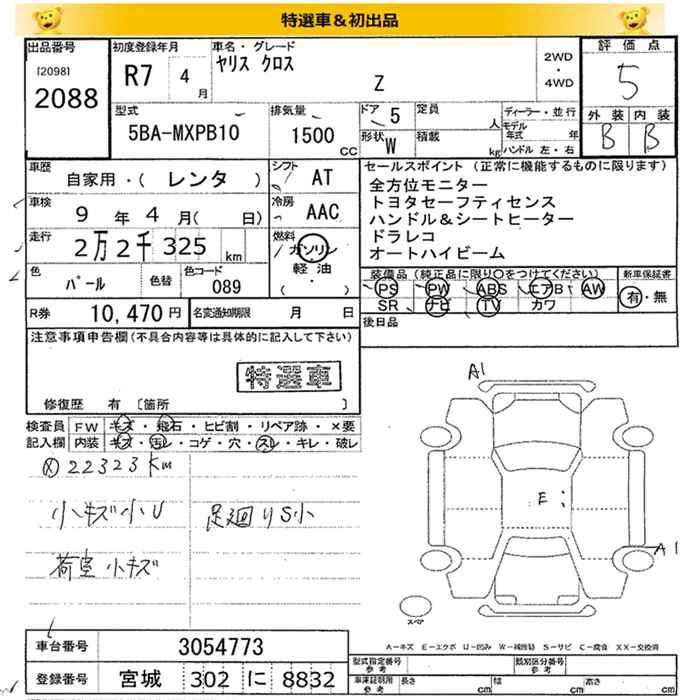 特選車＆初出品
出品番号 初度登録年月 車名・グレード 評価点
[2098] R7 4 月 ヤリス クロス 2WD・4WD 5
2088 Z
型式 排気量 ドア 5 定員 人 ディーラー・並行 外装 内装
5BA-MXPB10 1500 CC 形状 W 積載 kg モデル年式 年 B B
ハンドル 左・右
車歴 自家用・( レンタ ) シフト AT セールスポイント (正常に機能するものに限ります)
車検 9 年 4 月( 日) 冷房 AAC 全方位モニター
トヨタセーフティセンス
走行 2万2千325 km 燃料 ガソリン ハンドル＆シートヒーター
軽油 ドラレコ
( ) オートハイビーム
色 パール 色替 色コード 089 装備品(純正品に限り○をつけてください) 新車保証書
PS PW ABS エアB AW 有・無
SR ナビ TV カワ
R券 10,470円 名変通知期限 月 日 後日品
注意事項申告欄(不具合内容等は具体的に記入して下さい)
特選車
修復歴 有 [箇所 ]
検査員 FW キズ・飛石・ヒビ割・リペア跡・×要
記入欄 内装 キズ・汚レ・コゲ・穴・スレ・キレ・破レ
22323Km
小キズ小U 足廻りS小
荷室小キズ
A1
E
A1
スペア
A－キズ E－エクボ U－凹み W－補修跡 S－サビ C－腐食 XX－交換済
車台番号 3054773
登録番号 宮城 302 に 8832
型式指定番号 参考 類別区分番号 参考
車庫証明 参考 長さ cm 幅 cm 高さ cm